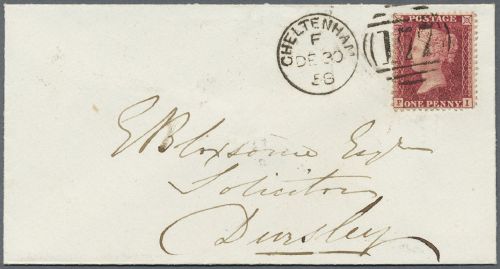 CHELTENHAM
F
DE 30
58
POSTAGE
177
ONE PENNY
I
E Bloxsome Esqre
Solicitor
Dursley